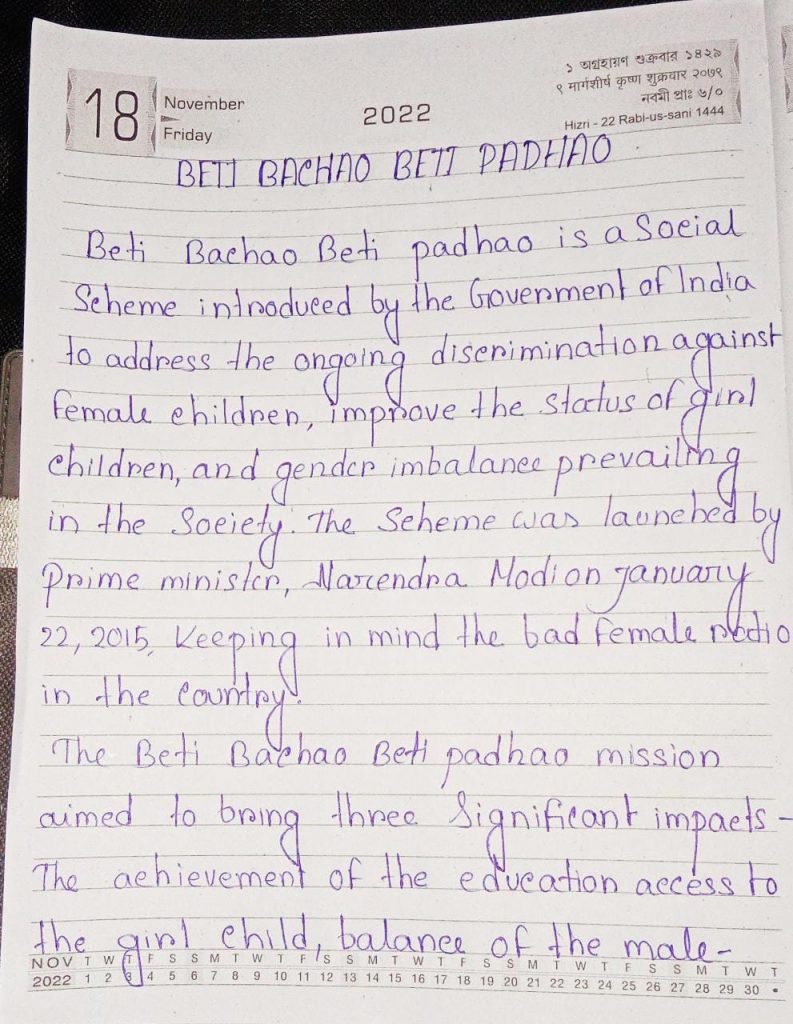 18
November
Friday
2022
১ অগ্রহায়ণ শুক্রবার ১৪২৯
९ मार्गशीर्ष कृष्ण शुक्रवार २०७९
नवमी प्राः ७/०
Hizri - 22 Rabi-us-sani 1444
BETI BACHAO BETI PADHAO
Beti Bachao Beti padhao is a Social
Scheme introduced by the Government of India
to address the ongoing discrimination against
female children, improve the status of girl
children, and gender imbalance prevailing
in the Society. The Scheme was launched by
Prime minister, Narendra Modi on January
22, 2015, Keeping in mind the bad female ratio
in the country.
The Beti Bachao Beti padhao mission
aimed to bring three Significant impacts -
The achievement of the education access to
the girl child, balance of the male-
NOV T W T F S S M T W T F S S M T W T F S S M T W T F S S M T W T
2022 1 2 3 4 5 6 7 8 9 10 11 12 13 14 15 16 17 18 19 20 21 22 23 24 25 26 27 28 29 30 •